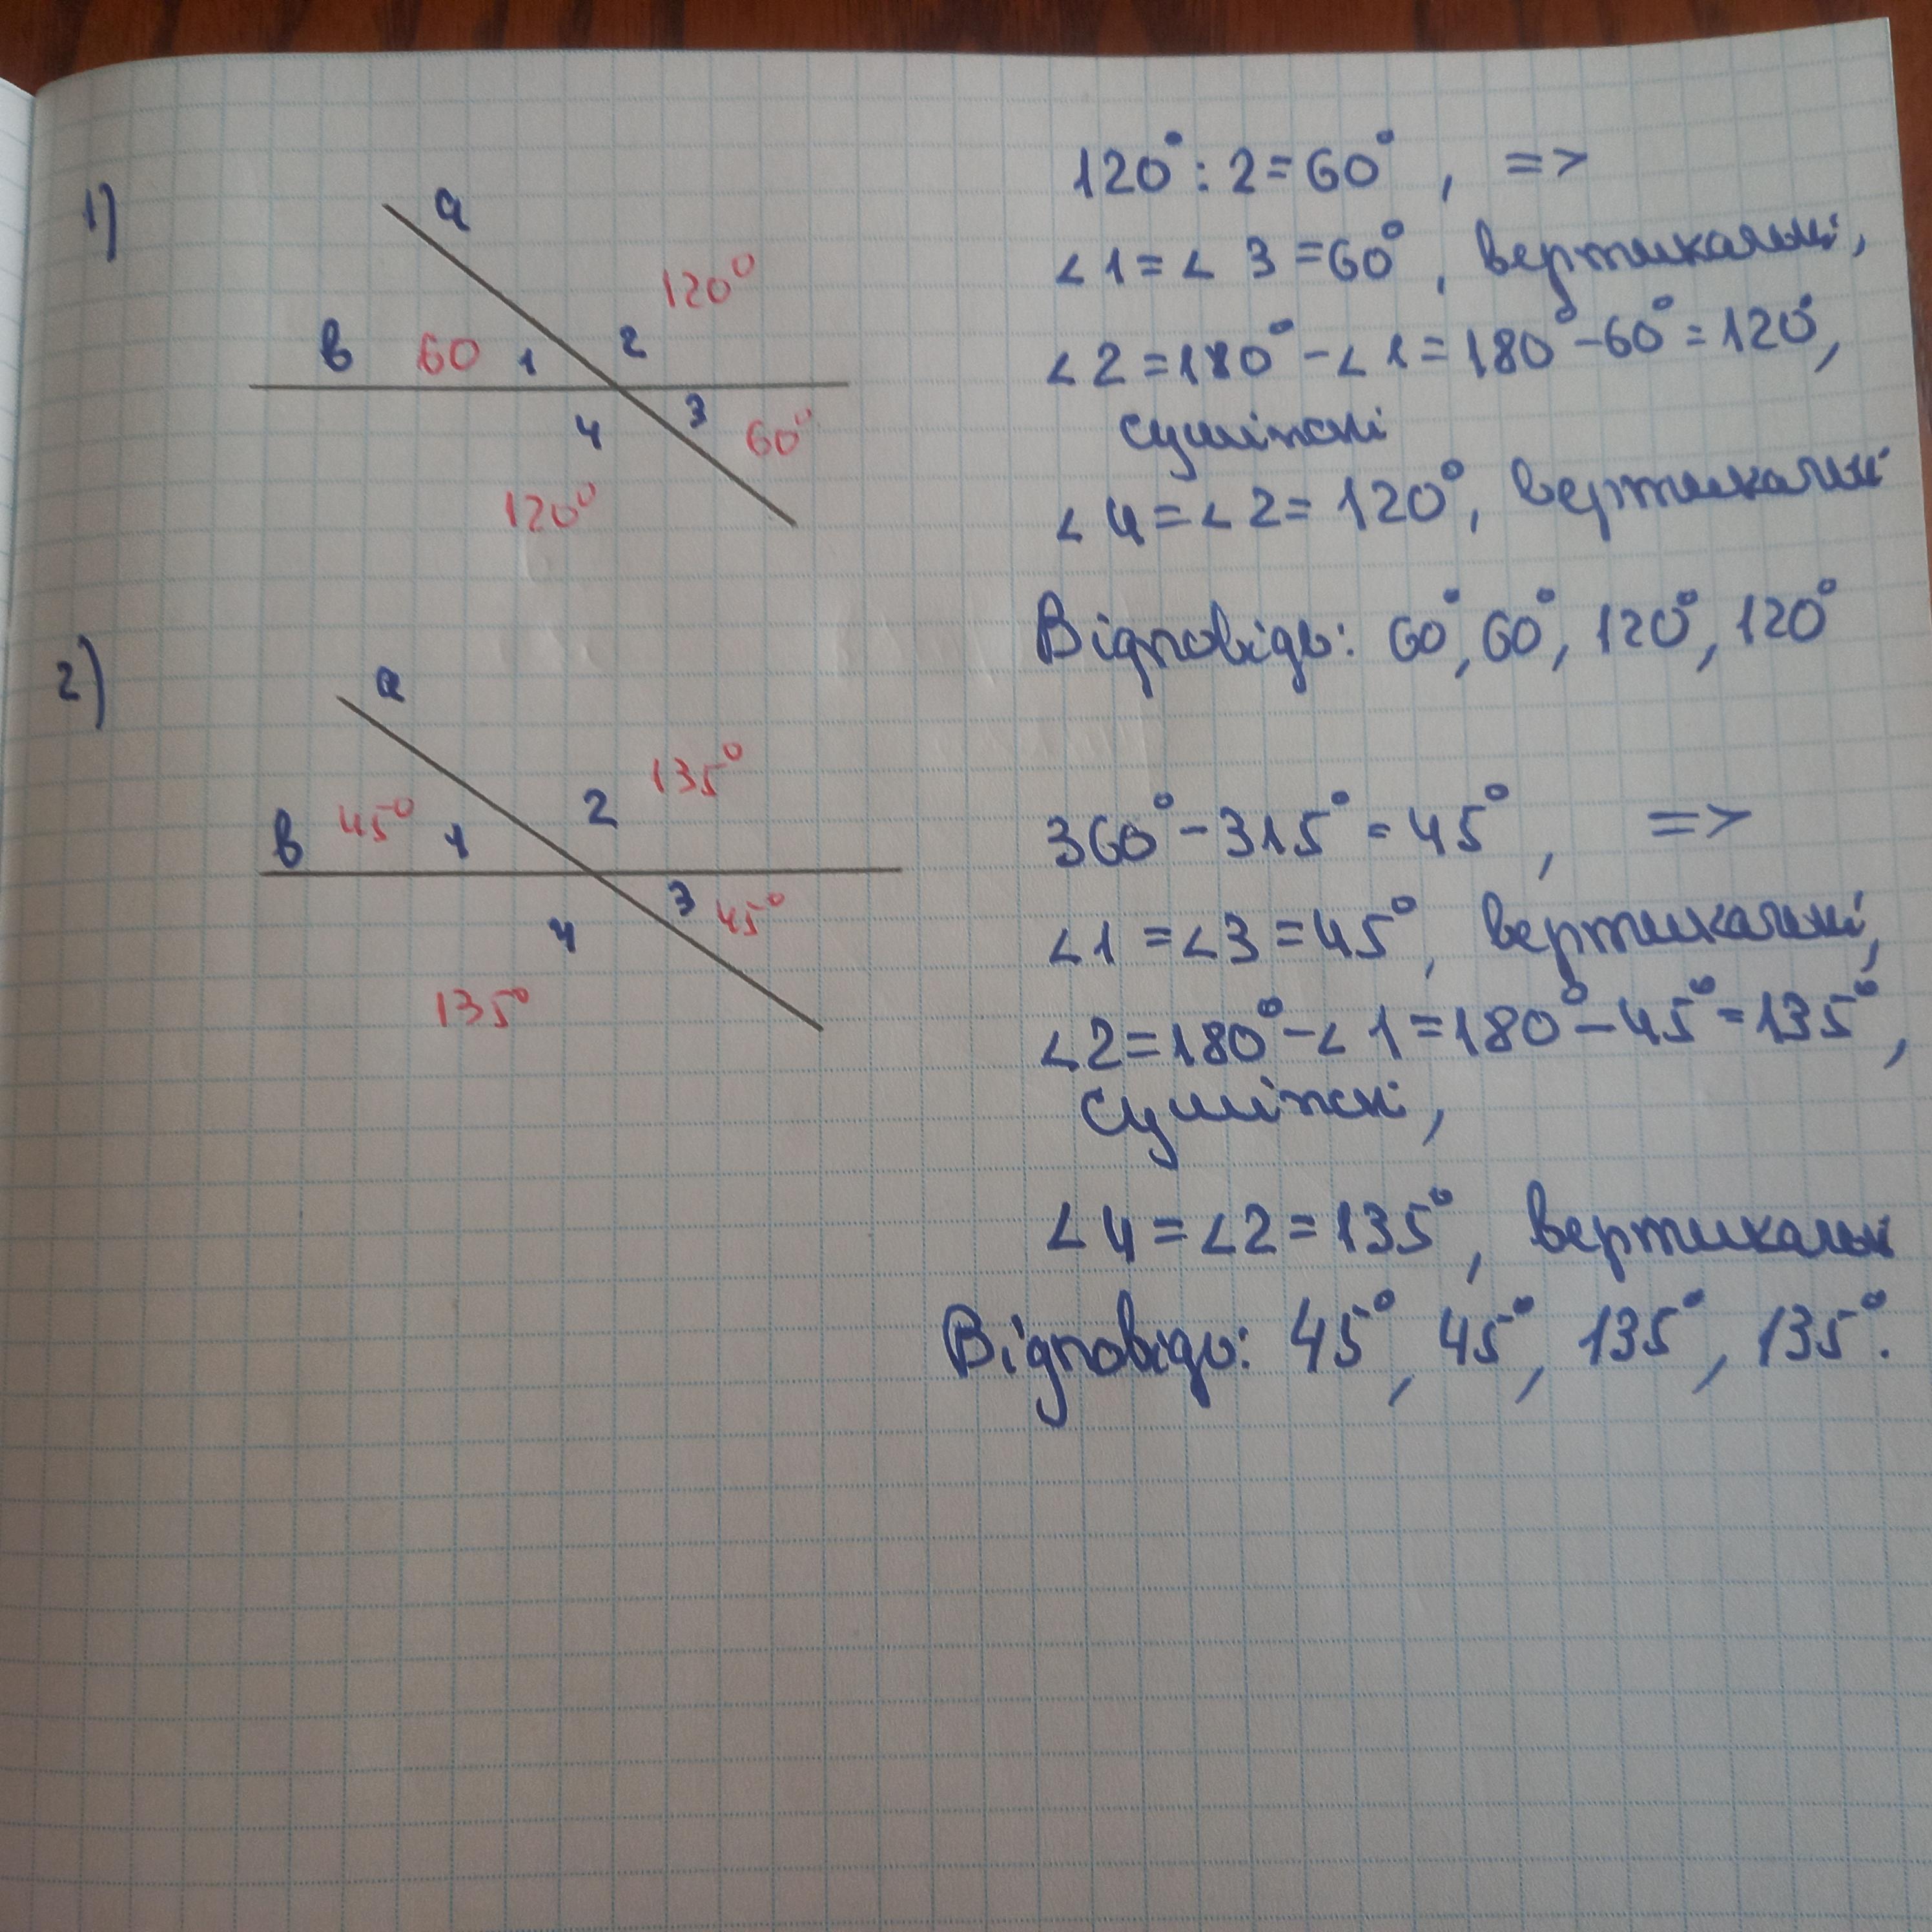 1)
a
120°
в 60 1 2
4 3 60°
120°
120° : 2 = 60° , =>
∠1 = ∠3 = 60° , вертикальні,
∠2 = 180° - ∠1 = 180° - 60° = 120°,
суміжні
∠4 = ∠2 = 120°, вертикальні
Відповідь: 60°, 60°, 120°, 120°
2)
a
135°
в 45° 1 2
4 3 45°
135°
360° - 315° = 45° , =>
∠1 = ∠3 = 45° , вертикальні,
∠2 = 180° - ∠1 = 180° - 45° = 135° ,
суміжні,
∠4 = ∠2 = 135° , вертикальні
Відповідь: 45°, 45°, 135°, 135°.